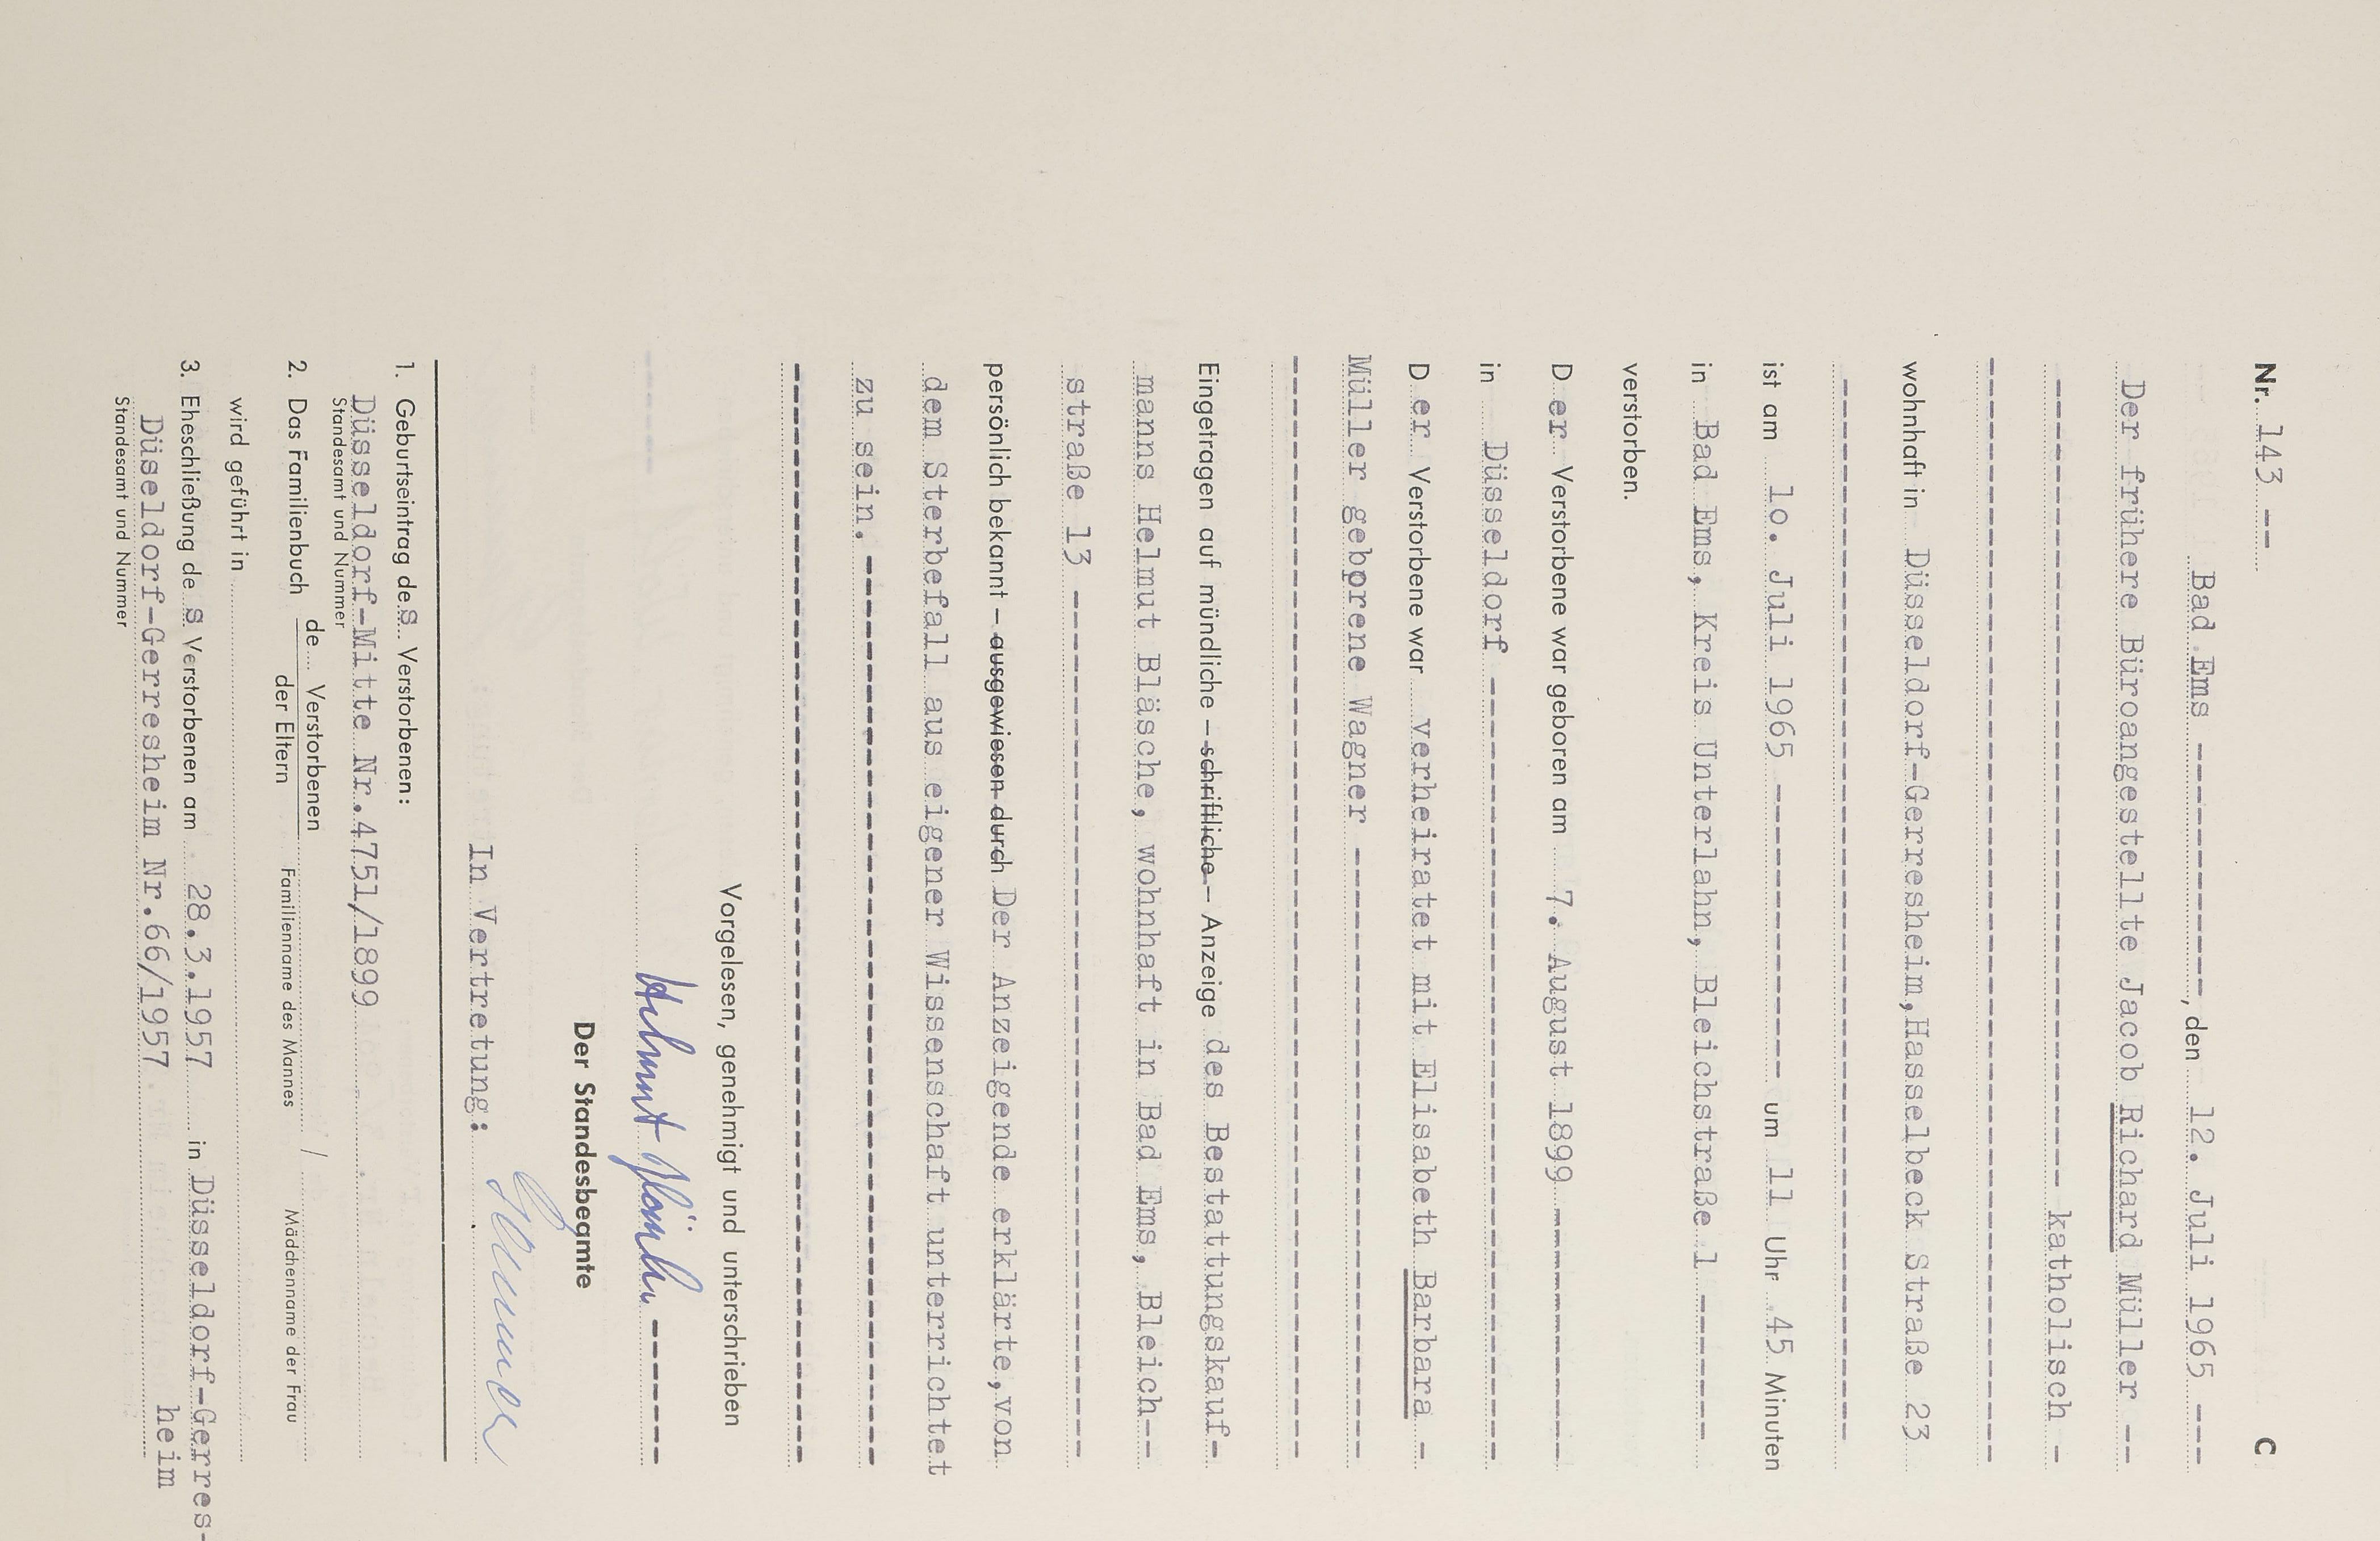 Nr. 143 -- C
Bad Ems -----------------, den 12. Juli 1965 ---
Der frühere Büroangestellte Jacob Richard Müller --
------------------------------------ katholisch -
--------------------------------------------------
wohnhaft in Düsseldorf-Gerresheim,Hasselbeck Straße 23
--------------------------------------------------
ist am lo. Juli 1965 ------------------ um 11 Uhr 45 Minuten
in Bad Ems, Kreis Unterlahn, Bleichstraße 1 --------
verstorben.
D er Verstorbene war geboren am 7. August 1899 --------------
in Düsseldorf ------------------------------------
D er Verstorbene war verheiratet mit Elisabeth Barbara -
Müller geborene Wagner ----------------------------
--------------------------------------------------
Eingetragen auf mündliche – schriftliche – Anzeige des Bestattungskauf-
manns Helmut Bläsche, wohnhaft in Bad Ems, Bleich--
straße 13 ----------------------------------------
persönlich bekannt – ausgewiesen durch Der Anzeigende erklärte,von
dem Sterbefall aus eigener Wissenschaft unterrichtet
zu sein. -----------------------------------------
--------------------------------------------------
Vorgelesen, genehmigt und unterschrieben
Helmut Bläsche -------
Der Standesbeamte
In Vertretung:
1. Geburtseintrag des Verstorbenen:
Düsseldorf-Mitte Nr.4751/1899
Standesamt und Nummer
de Verstorbenen /
2. Das Familienbuch der Eltern Familienname des Mannes Mädchenname der Frau
wird geführt in
3. Eheschließung de s Verstorbenen am 28.3.1957 in Düsseldorf-Gerres-
heim
Düseldorf-Gerresheim Nr.66/1957
Standesamt und Nummer